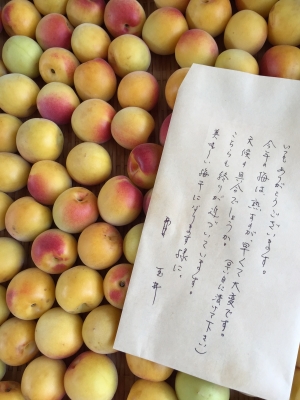 いつもありがとうございます。
今年の梅は熟すのが早くて大変です。
天候の具合でしょうか。（早目に漬けて下さい）
こちらも終りが近づいています。
美味しい梅干になります様に。